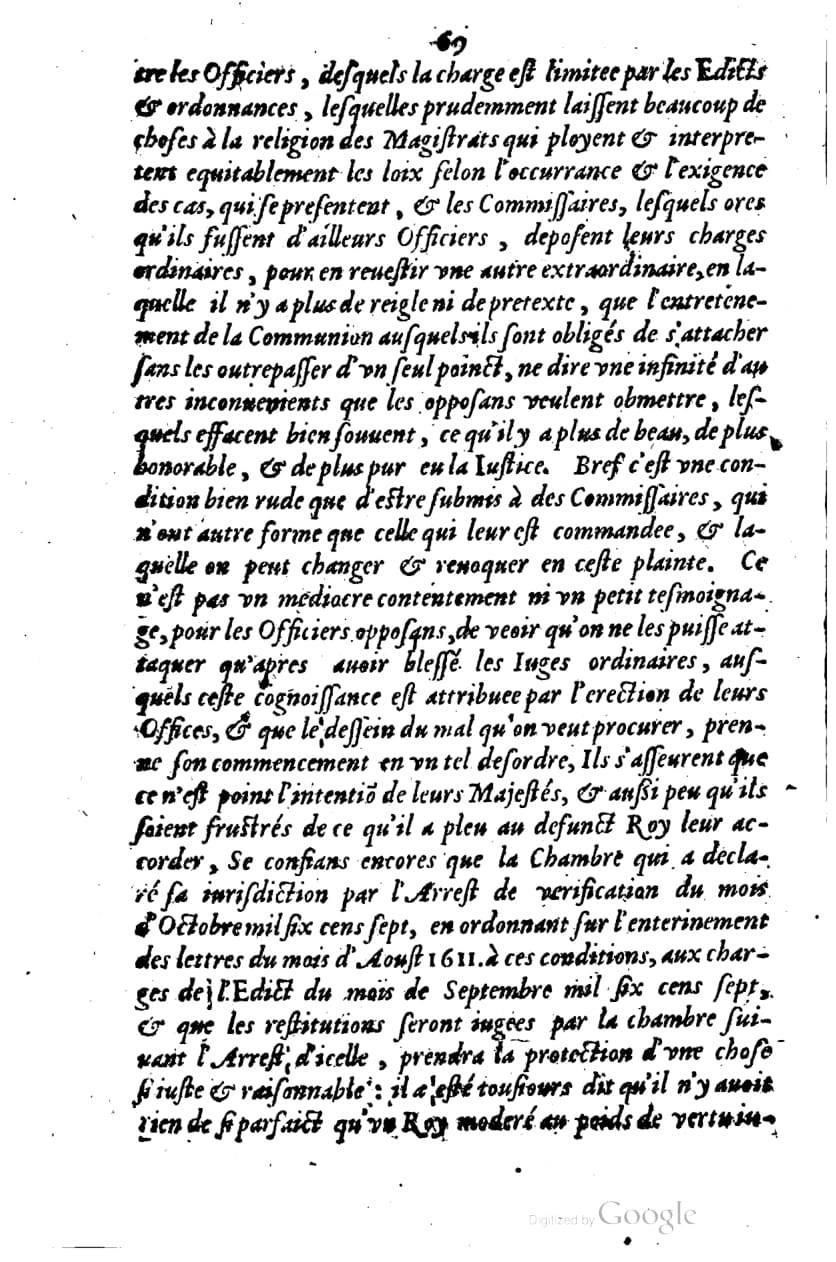 69
tre les Officiers, desquels la charge est limitee par les Edicts
& ordonnances, lesquelles prudemment laissent beaucoup de
choses à la religion des Magistrats qui ployent & interpre-
tent equitablement les loix selon l'occurrance & l'exigence
des cas, qui se presentent, & les Commissaires, lesquels ores
qu'ils fussent d'ailleurs Officiers, deposent leurs charges
ordinaires, pour en reuestir vne autre extraordinaire, en la-
quelle il n'y a plus de reigle ni de pretexte, que l'entretene-
ment de la Communion ausquels ils sont obligés de s'attacher
sans les outrepasser d'vn seul poinct, ne dire vne infinité d'au
tres inconuenients que les opposans veulent obmettre, les-
quels effacent bien souuent, ce qu'il y a plus de beau, de plus
honorable, & de plus pur eu la Iustice. Bref c'est vne con-
dition bien rude que d'estre submis à des Commissaires, qui
n'out autre forme que celle qui leur est commandee, & la-
quelle on peut changer & reuoquer en ceste plainte. Ce
n'est pas vn mediocre contentement ni vn petit tesmoigna-
ge, pour les Officiers opposans, de veoir qu'on ne les puisse at-
taquer qu'apres auoir blessé les Iuges ordinaires, aus-
quels ceste cognoissance est attribuee par l'erection de leurs
Offices, & que le dessein du mal qu'on veut procurer, pren-
ne son commencement en vn tel desordre, Ils s'asseurent que
ce n'est point l'intentiõ de leurs Majestés, & aussi peu qu'ils
soient frustrés de ce qu'il a pleu au defunct Roy leur ac-
corder, Se confians encores que la Chambre qui a decla-
ré sa iurisdiction par l'Arrest de verification du mois
d'Octobre mil six cens sept, en ordonnant sur l'enterinement
des lettres du mois d'Aoust 1611. à ces conditions, aux char-
ges de l'Edict du mois de Septembre mil six cens sept,
& que les restitutions seront iugees par la chambre sui-
uant l'Arrest d'icelle, prendra la protection d'vne chose
si iuste & raisonnable : il a esté tousiours dit qu'il n'y auoit
rien de si parfaict qu'vn Roy moderé au poids de vertu in-
Digitized by Google